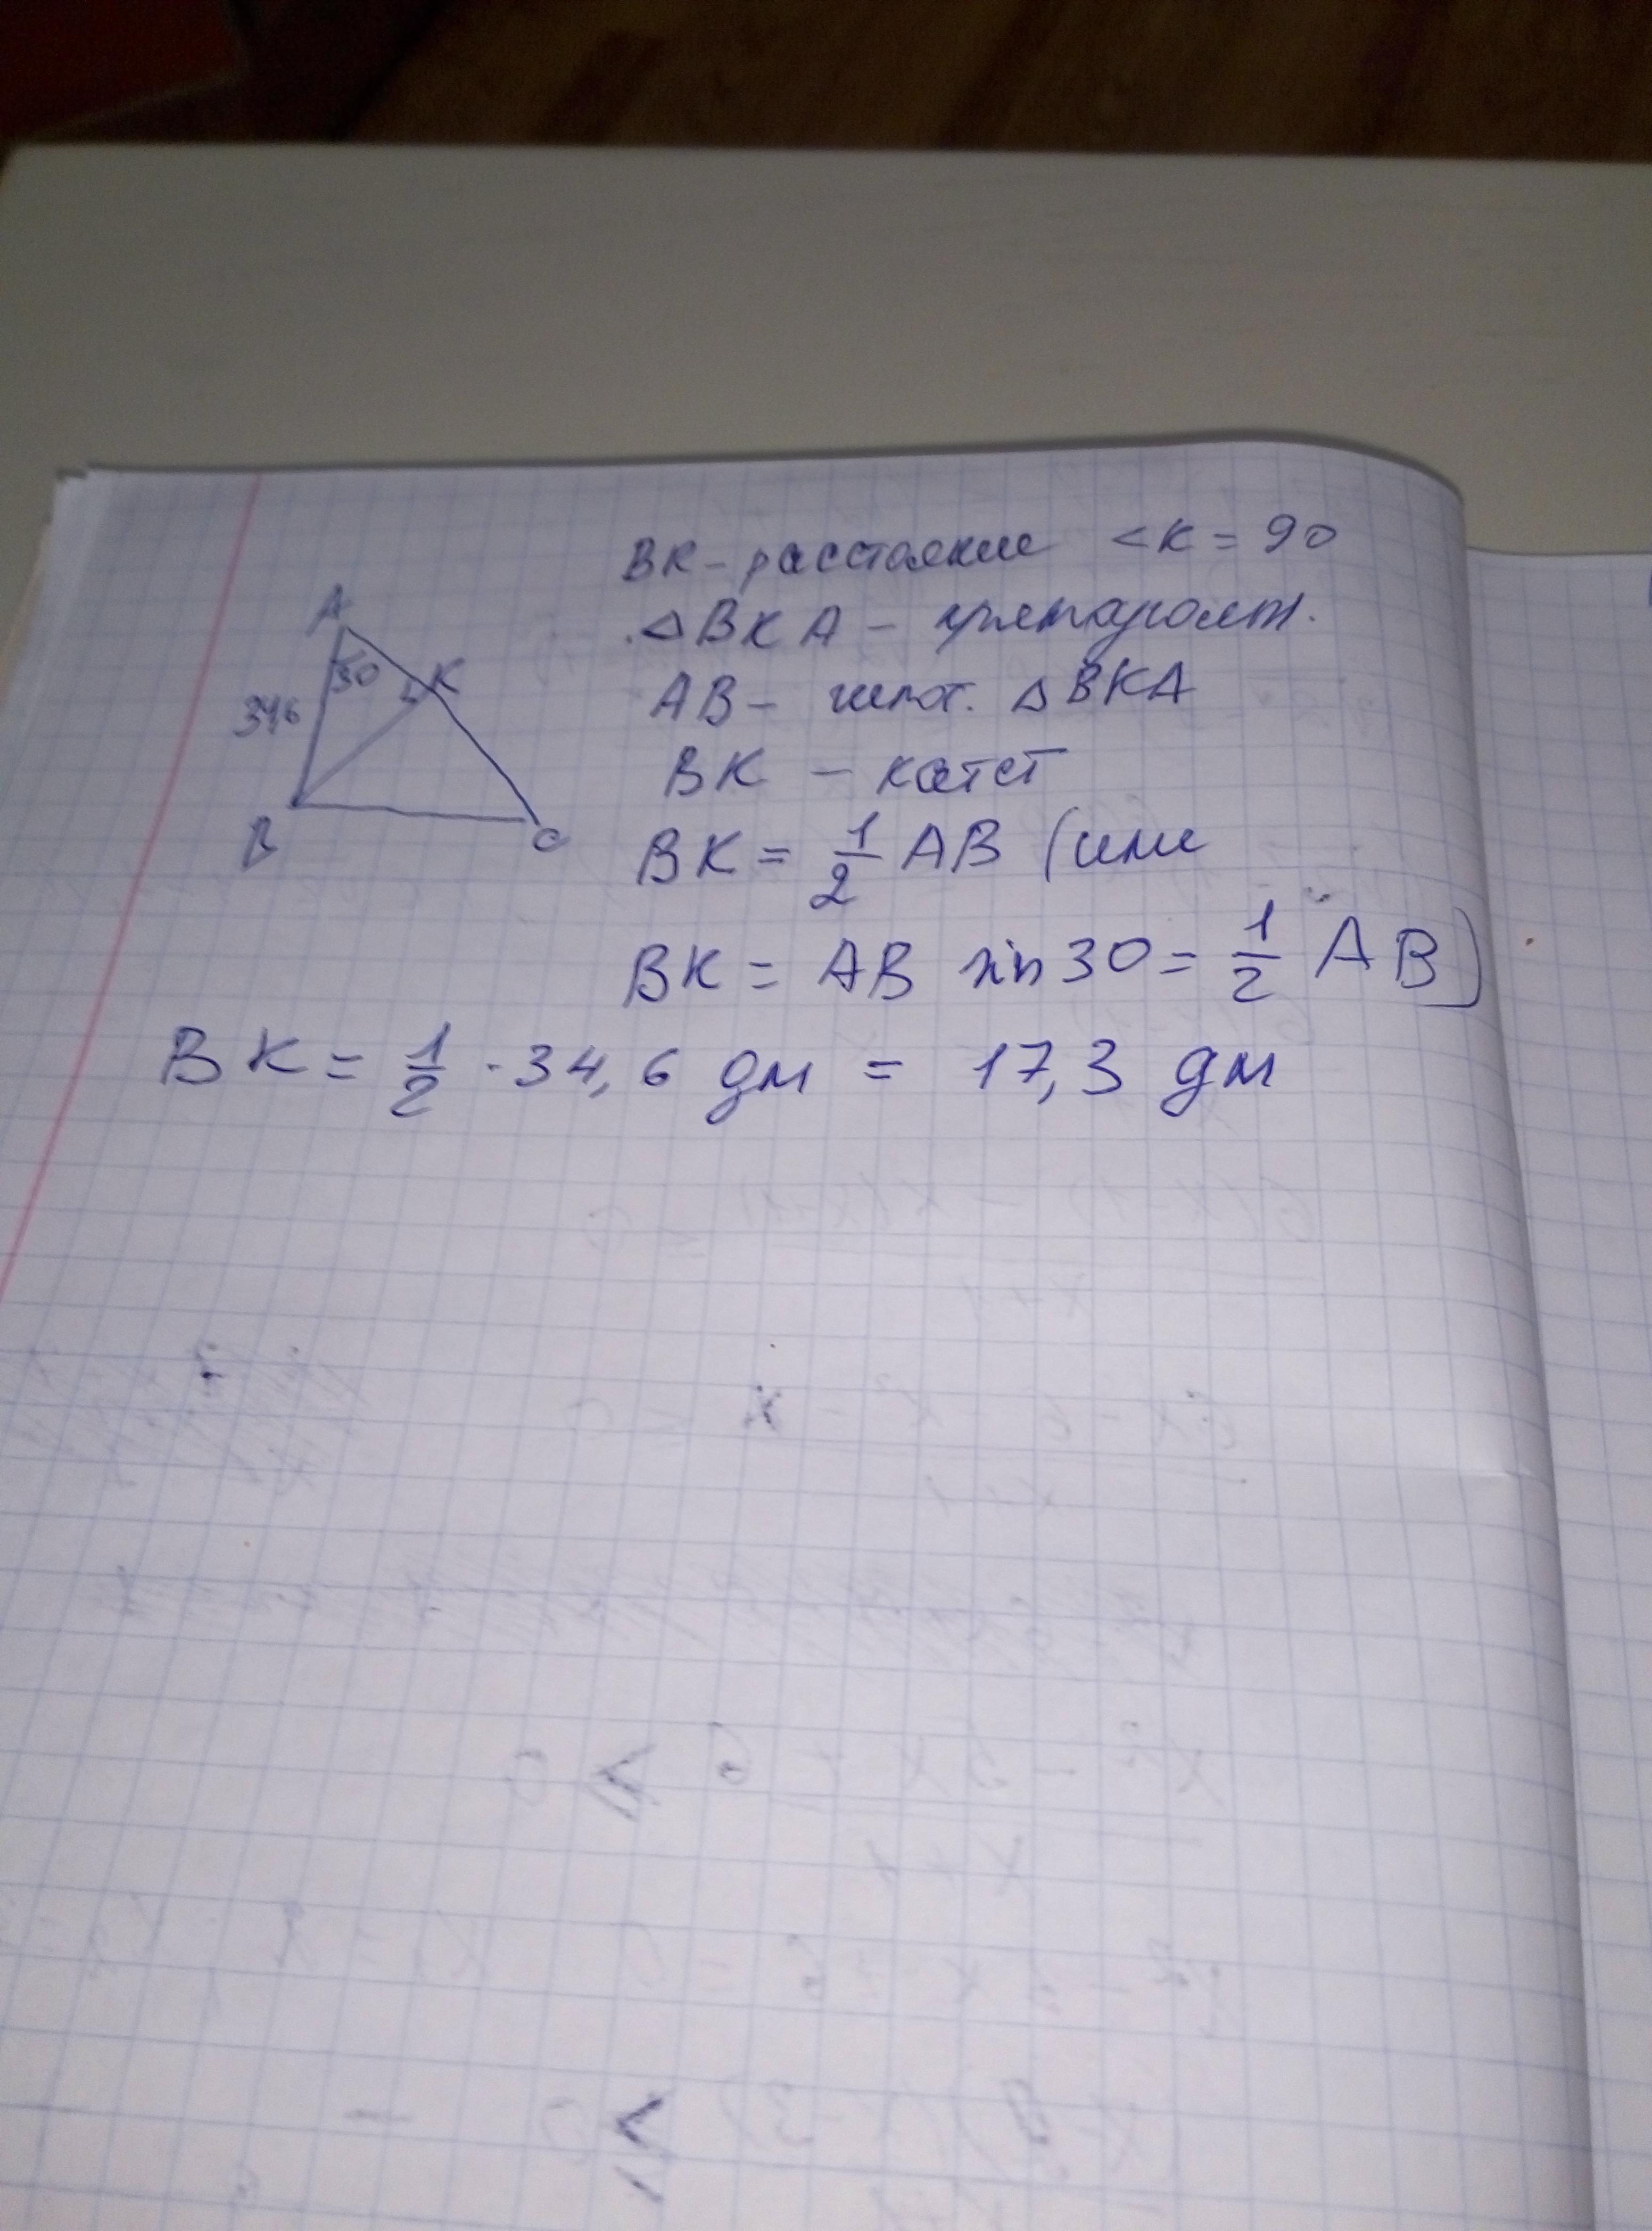 BK - расстояние < K = 90
△BKA - прямоугольн.
AB - гипот. △BKA
BK - катет
BK = 1/2 AB (или
BK = AB sin30 = 1/2 AB)
BK = 1/2 · 34,6 дм = 17,3 дм
A
30
K
346
B
C